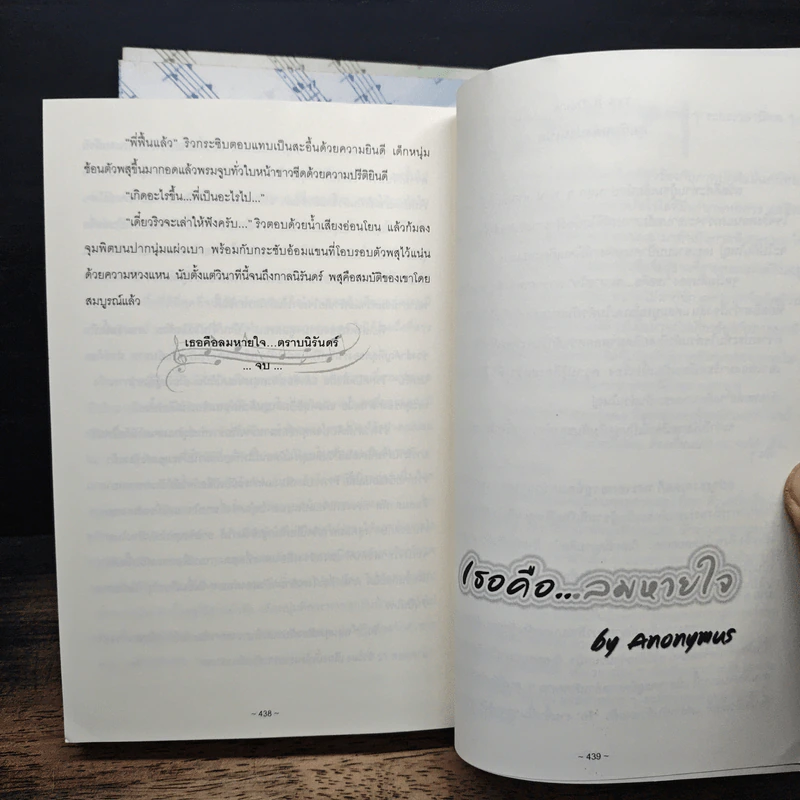 "พี่ฟื้นแล้ว" ริวกระซิบตอบแทบเป็นสะอื้นด้วยความยินดี เด็กหนุ่ม
ช้อนตัวพสุขึ้นมากอดแล้วพรมจูบทั่วใบหน้าขาวซีดด้วยความปรีติยินดี
"เกิดอะไรขึ้น...พี่เป็นอะไรไป..."
"เดี๋ยวริวจะเล่าให้ฟังครับ..." ริวตอบด้วยน้ำเสียงอ่อนโยน แล้วก้มลง
จุมพิตบนปากนุ่มแผ่วเบา พร้อมกับกระชับอ้อมแขนที่โอบรอบตัวพสุไว้แน่น
ด้วยความหวงแหน นับตั้งแต่วินาทีนี้จนถึงกาลนิรันดร์ พสุคือสมบัติของเขาโดย
สมบูรณ์แล้ว
เธอคือลมหายใจ...ตราบนิรันดร์
... จบ ...
- 438 -
เธอคือ...ลมหายใจ
by Anonymus
- 439 -